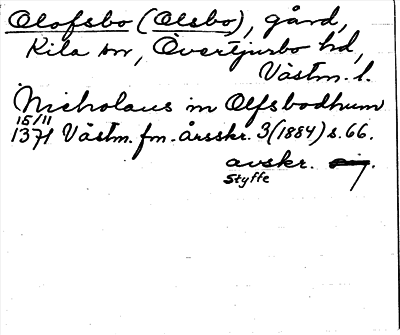 Olofsbo (Olsbo), gård,
Kila sn, Övertjurbo hd,
Västm. l.
Nicholaus in Olfsbodhum
15/11
1371 Västm. fm. årsskr. 3 (1884) s. 66.
avskr.
Styffe